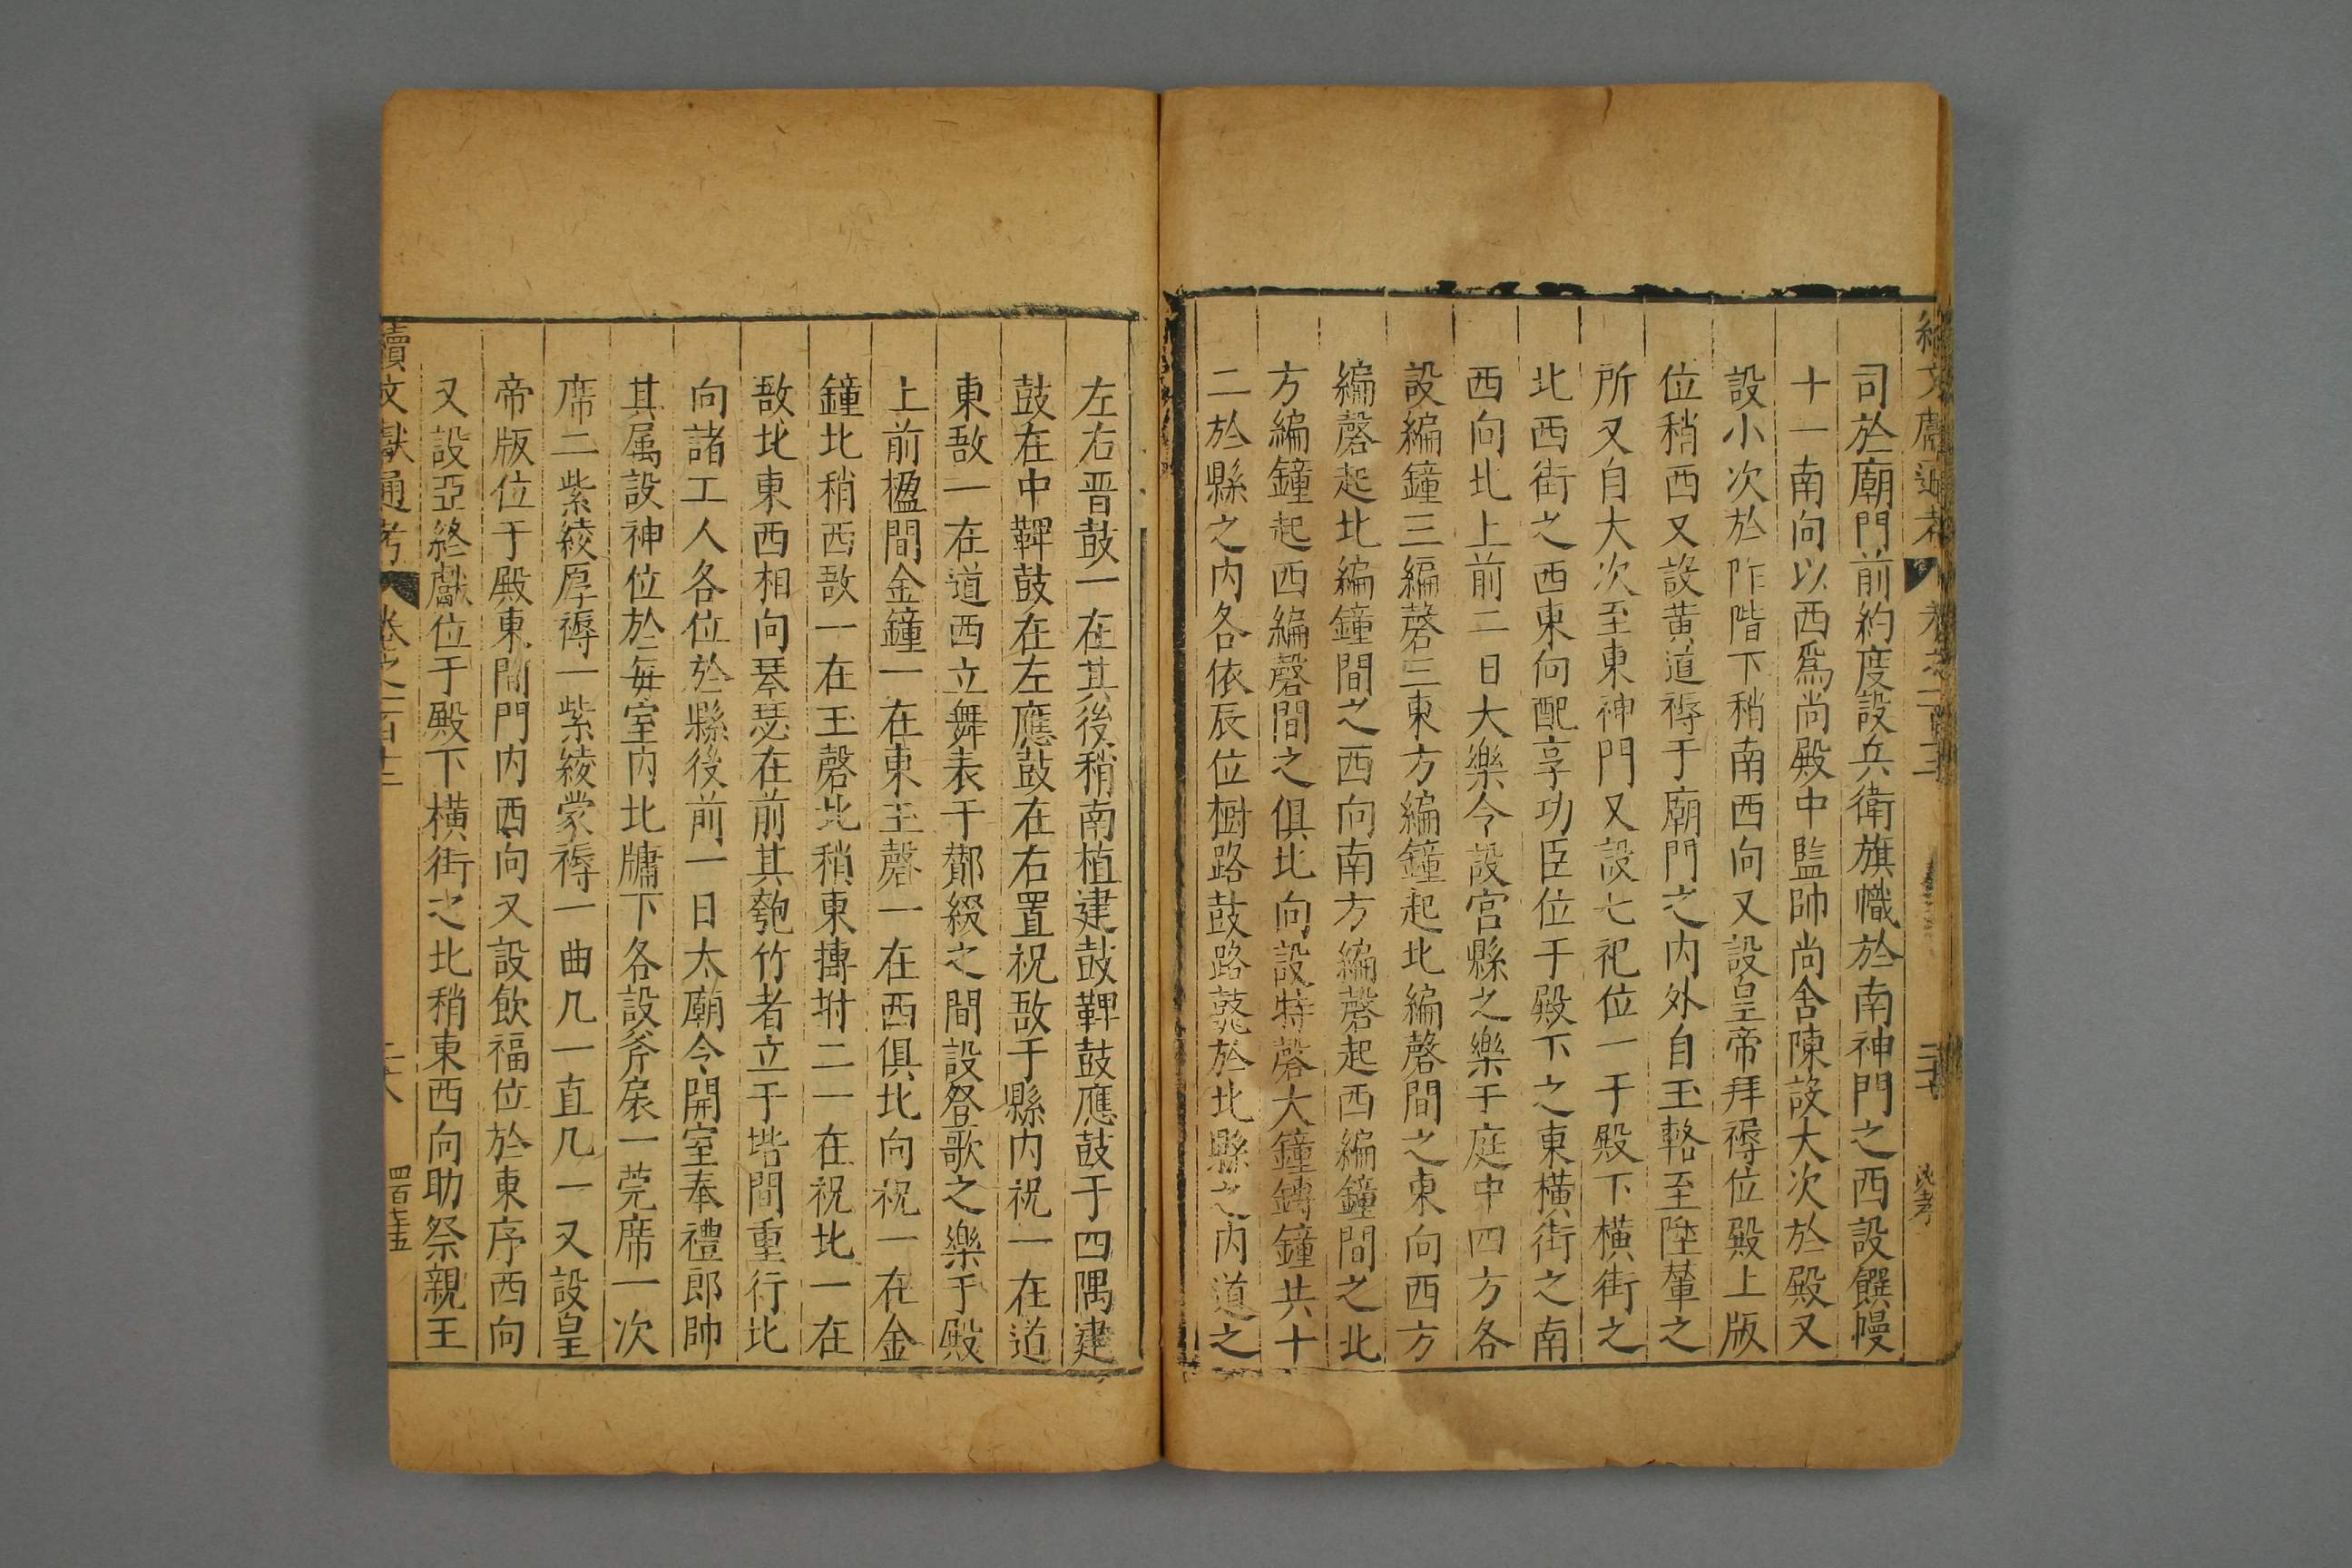 司於廟門前約度設兵衛旗幟於南神門之西設饌幔
十一南向以西爲尚殿中監帥尚舍陳設大次於殿又
設小次於阼階下稍南西向又設皇帝拜褥位殿上版
位稍西又設黄道褥于廟門之内外自玉輅至陞輦之
所又自大次至東神門又設七祀位一于殿下横街之
北西街之西東向配享功臣位于殿下之東横街之南
西向北上前二日大樂令設宮縣之樂于庭中四方各
設編鐘三編磬三東方編鐘起北編磬間之東向西方
編磬起北編鐘間之西向南方編磬起西編鐘間之北
方編鐘起西編磬間之俱北向設特磬大鐘鎛鐘共十
二於縣之内各依辰位樹路鼓路鼗於北縣之内道之
左右晋鼓一在其後稍南植建鼓鞞鼓應鼓于四隅建
鼓在中鞞鼓在左應鼓在右置柷敔于縣内柷一在道
東敔一在道西立舞表于酇綴之間設登歌之樂于殿
上前楹間金鐘一在東玉磬一在西俱北向柷一在金
鐘北稍西敔一在玉磬北稍東搏拊二一在柷北一在
敔北東西相向琴瑟在前其匏竹者立于堦間重行北
向諸工人各位於縣後前一日太廟令開室奉禮郎帥
其属設神位於每室内北牖下各設斧扆一莞席一次
席二紫綾厚褥一紫綾蒙褥一曲几一直几一又設皇
帝版位于殿東間門内西向又設飲福位於東序西向
又設亞終獻位于殿下横街之北稍東西向助祭親王
續文獻通考 卷之一百十三
四百七十五